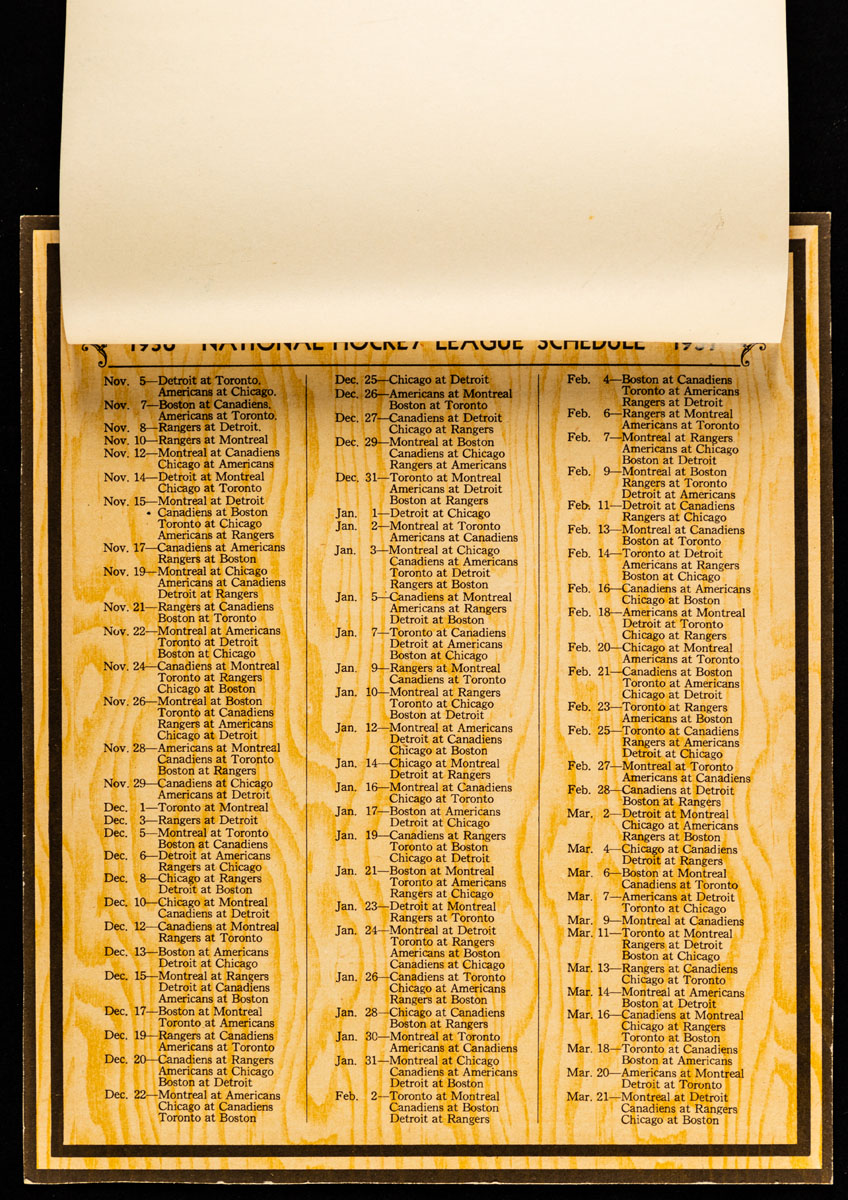 1936 NATIONAL HOCKEY LEAGUE SCHEDULE 1937
Nov. 5—Detroit at Toronto.
Americans at Chicago.
Nov. 7—Boston at Canadiens.
Americans at Toronto.
Nov. 8—Rangers at Detroit.
Nov. 10—Rangers at Montreal
Nov. 12—Montreal at Canadiens
Chicago at Americans
Nov. 14—Detroit at Montreal
Chicago at Toronto
Nov. 15—Montreal at Detroit
Canadiens at Boston
Toronto at Chicago
Americans at Rangers
Nov. 17—Canadiens at Americans
Rangers at Boston
Nov. 19—Montreal at Chicago
Americans at Canadiens
Detroit at Rangers
Nov. 21—Rangers at Canadiens
Boston at Toronto
Nov. 22—Montreal at Americans
Toronto at Detroit
Boston at Chicago
Nov. 24—Canadiens at Montreal
Toronto at Rangers
Chicago at Boston
Nov. 26—Montreal at Boston
Toronto at Canadiens
Rangers at Americans
Chicago at Detroit
Nov. 28—Americans at Montreal
Canadiens at Toronto
Boston at Rangers
Nov. 29—Canadiens at Chicago
Americans at Detroit
Dec. 1—Toronto at Montreal
Dec. 3—Rangers at Detroit
Dec. 5—Montreal at Toronto
Boston at Canadiens
Dec. 6—Detroit at Americans
Rangers at Chicago
Dec. 8—Chicago at Rangers
Detroit at Boston
Dec. 10—Chicago at Montreal
Canadiens at Detroit
Dec. 12—Canadiens at Montreal
Rangers at Toronto
Dec. 13—Boston at Americans
Detroit at Chicago
Dec. 15—Montreal at Rangers
Detroit at Canadiens
Americans at Boston
Dec. 17—Boston at Montreal
Toronto at Americans
Dec. 19—Rangers at Canadiens
Americans at Toronto
Dec. 20—Canadiens at Rangers
Americans at Chicago
Boston at Detroit
Dec. 22—Montreal at Americans
Chicago at Canadiens
Toronto at Boston
Dec. 25—Chicago at Detroit
Dec. 26—Americans at Montreal
Boston at Toronto
Dec. 27—Canadiens at Detroit
Chicago at Rangers
Dec. 29—Montreal at Boston
Canadiens at Chicago
Rangers at Americans
Dec. 31—Toronto at Montreal
Americans at Detroit
Boston at Rangers
Jan. 1—Detroit at Chicago
Jan. 2—Montreal at Toronto
Americans at Canadiens
Jan. 3—Montreal at Chicago
Canadiens at Americans
Toronto at Detroit
Rangers at Boston
Jan. 5—Canadiens at Montreal
Americans at Rangers
Detroit at Boston
Jan. 7—Toronto at Canadiens
Detroit at Americans
Boston at Chicago
Jan. 9—Rangers at Montreal
Canadiens at Toronto
Jan. 10—Montreal at Rangers
Toronto at Chicago
Boston at Detroit
Jan. 12—Montreal at Americans
Detroit at Canadiens
Chicago at Boston
Jan. 14—Chicago at Montreal
Detroit at Rangers
Jan. 16—Montreal at Canadiens
Chicago at Toronto
Jan. 17—Boston at Americans
Detroit at Chicago
Jan. 19—Canadiens at Rangers
Toronto at Boston
Chicago at Detroit
Jan. 21—Boston at Montreal
Toronto at Americans
Rangers at Chicago
Jan. 23—Detroit at Montreal
Rangers at Toronto
Jan. 24—Montreal at Detroit
Toronto at Rangers
Americans at Boston
Canadiens at Chicago
Jan. 26—Canadiens at Toronto
Chicago at Americans
Rangers at Boston
Jan. 28—Chicago at Canadiens
Boston at Rangers
Jan. 30—Montreal at Toronto
Americans at Canadiens
Jan. 31—Montreal at Chicago
Canadiens at Americans
Detroit at Boston
Feb. 2—Toronto at Montreal
Canadiens at Boston
Detroit at Rangers
Feb. 4—Boston at Canadiens
Toronto at Americans
Rangers at Detroit
Feb. 6—Rangers at Montreal
Americans at Toronto
Feb. 7—Montreal at Rangers
Americans at Chicago
Boston at Detroit
Feb. 9—Montreal at Boston
Rangers at Toronto
Detroit at Americans
Feb. 11—Detroit at Canadiens
Rangers at Chicago
Feb. 13—Montreal at Canadiens
Boston at Toronto
Feb. 14—Toronto at Detroit
Americans at Rangers
Boston at Chicago
Feb. 16—Canadiens at Americans
Chicago at Boston
Feb. 18—Americans at Montreal
Detroit at Toronto
Chicago at Rangers
Feb. 20—Chicago at Montreal
Americans at Toronto
Feb. 21—Canadiens at Boston
Toronto at Americans
Chicago at Detroit
Feb. 23—Toronto at Rangers
Americans at Boston
Feb. 25—Toronto at Canadiens
Rangers at Americans
Detroit at Chicago
Feb. 27—Montreal at Toronto
Americans at Canadiens
Feb. 28—Canadiens at Detroit
Boston at Rangers
Mar. 2—Detroit at Montreal
Chicago at Americans
Rangers at Boston
Mar. 4—Chicago at Canadiens
Detroit at Rangers
Mar. 6—Boston at Montreal
Canadiens at Toronto
Mar. 7—Americans at Detroit
Toronto at Chicago
Mar. 9—Montreal at Canadiens
Mar. 11—Toronto at Montreal
Rangers at Detroit
Boston at Chicago
Mar. 13—Rangers at Canadiens
Chicago at Toronto
Mar. 14—Montreal at Americans
Boston at Detroit
Mar. 16—Canadiens at Montreal
Chicago at Rangers
Toronto at Boston
Mar. 18—Toronto at Canadiens
Boston at Americans
Mar. 20—Americans at Montreal
Detroit at Toronto
Mar. 21—Montreal at Detroit
Canadiens at Rangers
Chicago at Boston